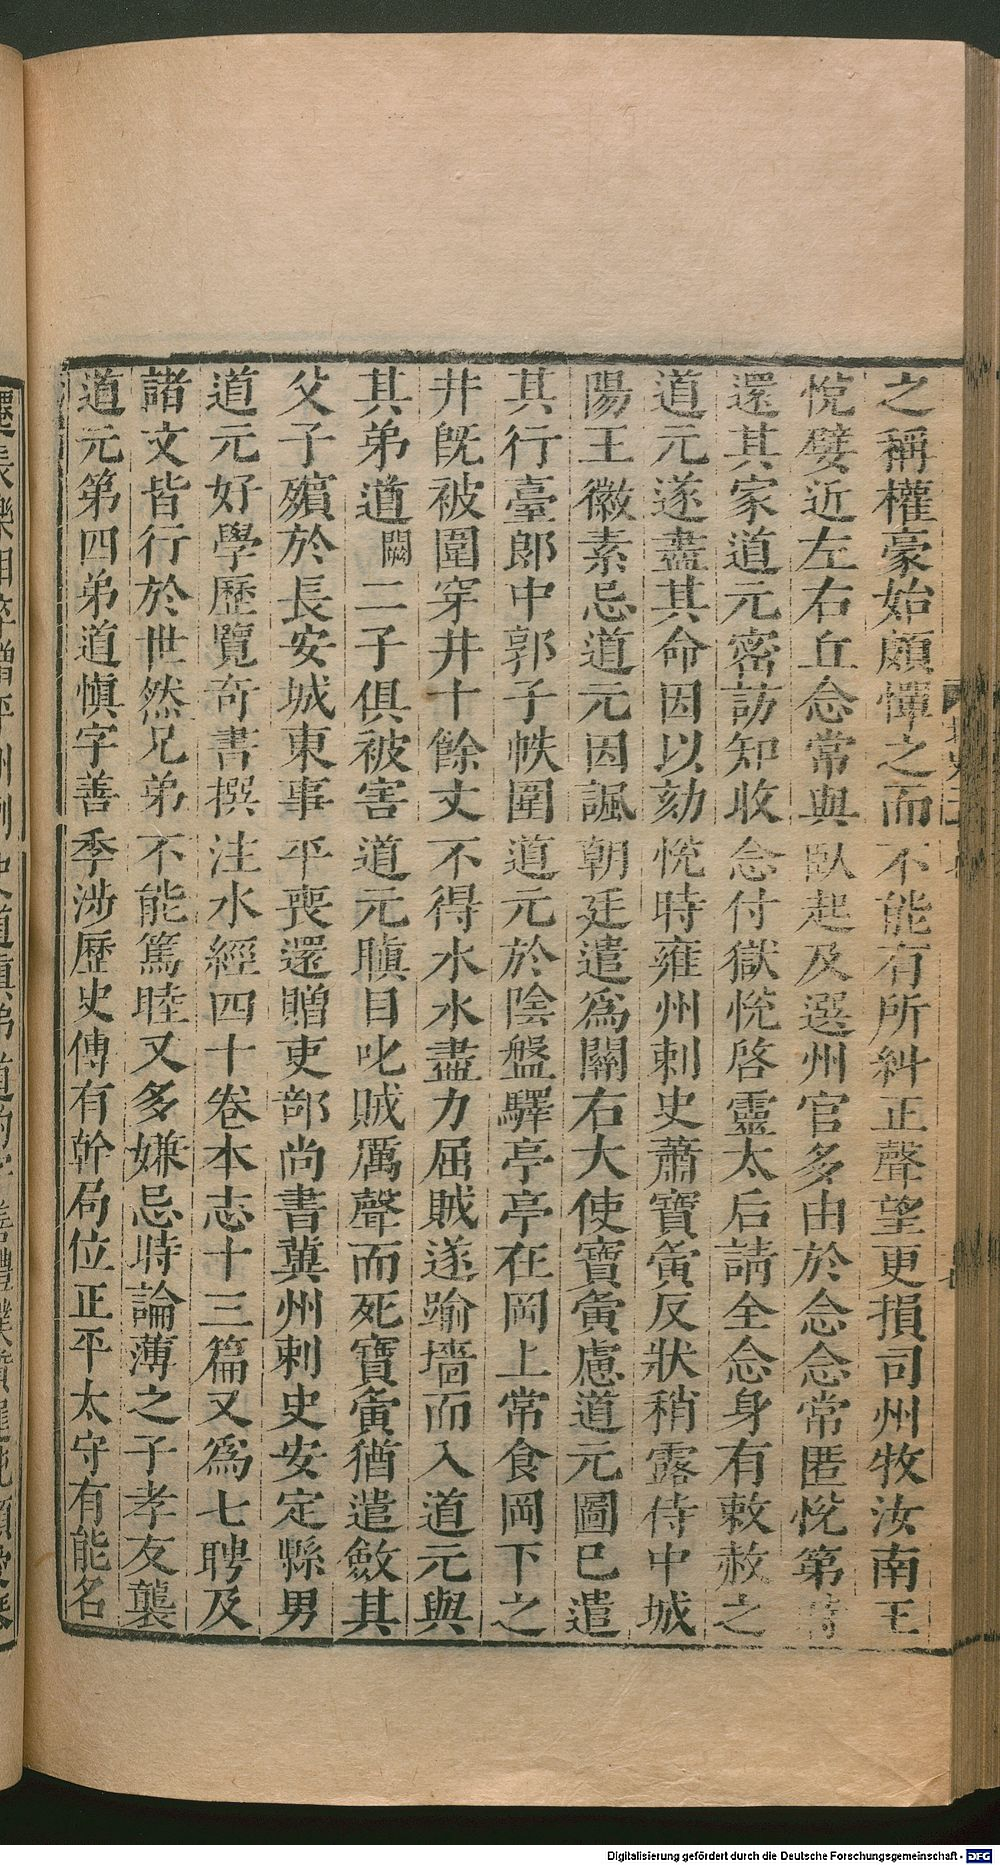 之稱權豪始頗憚之而不能有所糾正聲望更損司州牧汝南王
悅嬖近左右丘念常與臥起及選州官多由於念念常匿悅第
還其家道元密訪知收念付獄悅啓靈太后請全念身有敕赦之
道元遂盡其命因以劾悅時雍州刺史蕭寶夤反狀稍露侍中城
陽王徽素忌道元因諷朝廷遣爲關右大使寶夤慮道元圖已遣
其行臺郎中郭子帙圍道元於陰盤驛亭亭在岡上常食岡下之
井旣被圍穿井十餘丈不得水水盡力屈賊遂踰墻而入道元與
其弟道闕二子俱被害道元瞋目叱賊厲聲而死寶夤猶遣斂其
父子殯於長安城東事平喪還贈吏部尚書冀州刺史安定縣男
道元好學歷覽奇書撰注水經四十卷本志十三篇又爲七聘及
諸文皆行於世然兄弟不能篤睦又多嫌忌時論薄之子孝友襲
道元第四弟道愼字善季涉歷史傳有幹局位正平太守有能名
Digitalisierung gefördert durch die Deutsche Forschungsgemeinschaft - DFG